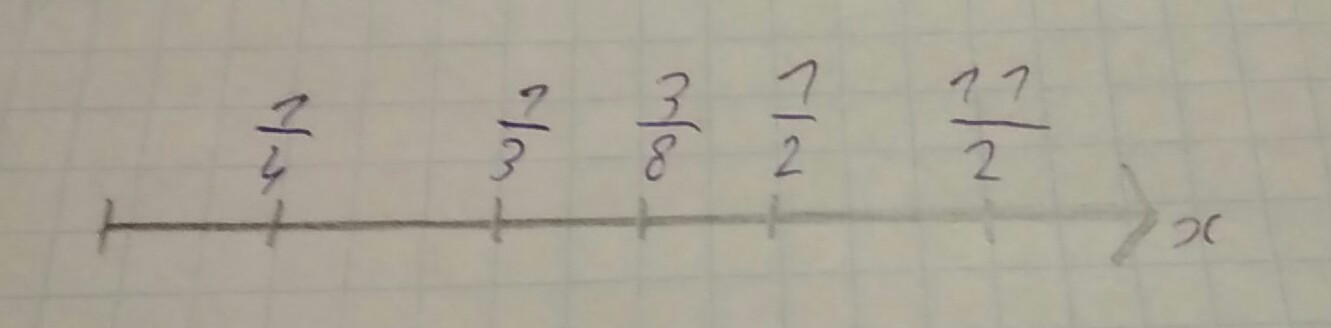 1/4 1/3 3/8 1/2 11/2
x